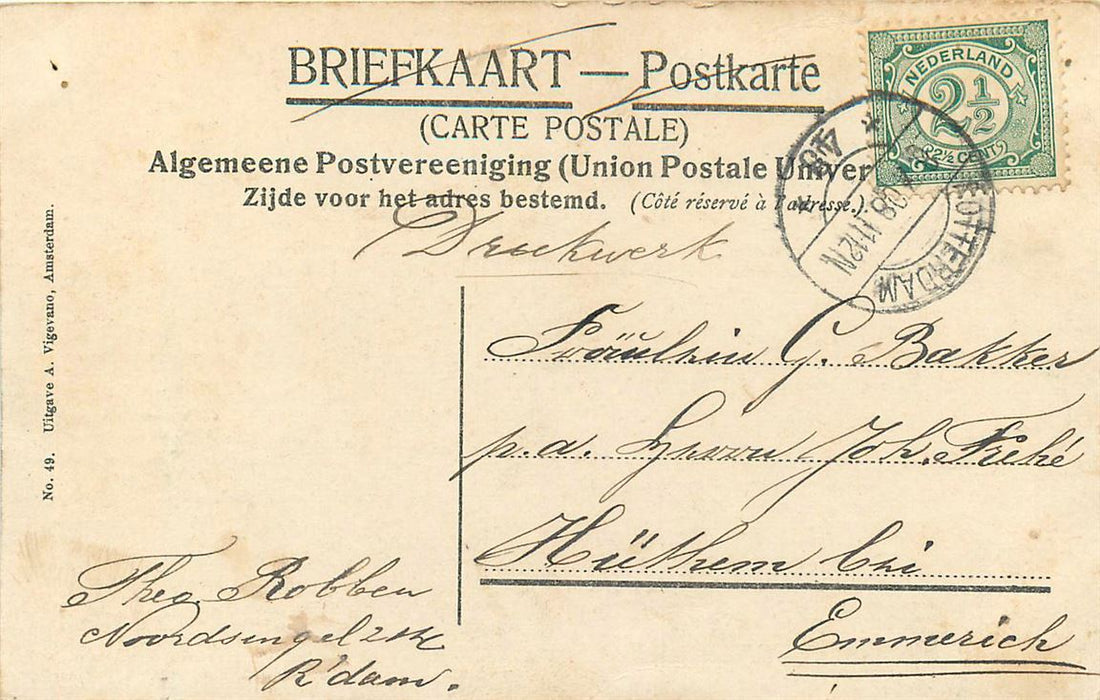 BRIEFKAART — Postkarte
(CARTE POSTALE)
Algemeene Postvereeniging (Union Postale Univer
Zijde voor het adres bestemd. (Côté réservé à l'adresse.)
NEDERLAND
2½
(2½ CENT)
ROTTERDAM
11-12N
Drukwerk
Fräulein G. Bakker
p.a. Herrn Joh. Freké
Hüthem bei
Emmerich
Theo Robben
Noordsingel
R'dam.
No. 49. Uitgave A. Vigevano, Amsterdam.